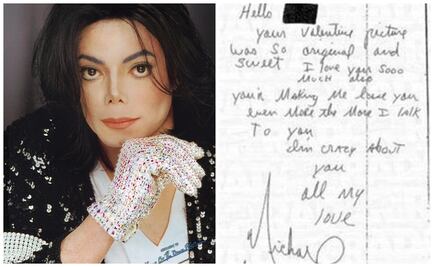 Hello
your Valentine picture
was so original and
sweet I love you sooo
much also
you'r making me love you
even more the more I talk
To you
Im crazy About
you
all my
love
Michael